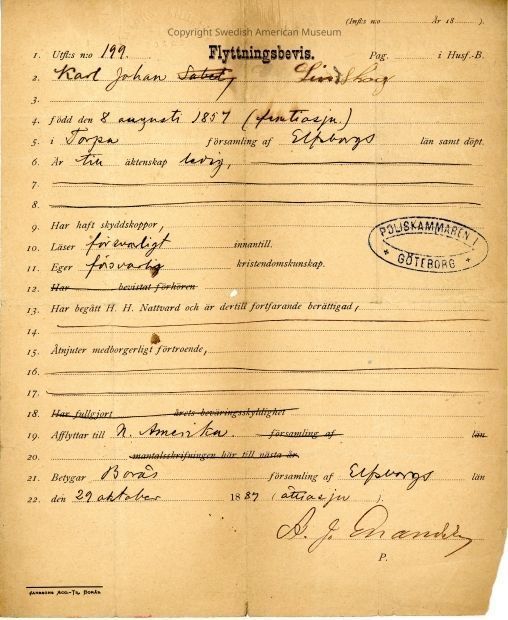 Copyright Swedish American Museum
(Infls n:o Är 18 ).
1. Utfls n:o 199. Flyttningsbevis. Pag. i Husf.-B.
2. Karl Johan Lindskog
3.
4. född den 8 augusti 1857 (femtiosju)
5. i Torpa församling af Elfsborgs län samt döpt.
6. Är till äktenskap ledig,
7.
8.
9. Har haft skyddskoppor,
10. Läser försvarligt innantill.
11. Eger försvarlig kristendomskunskap.
12. Har bevistat förhören
13. Har begått H. H. Nattvard och är dertill fortfarande berättigad,
14.
15. Åtnjuter medborgerligt förtroende,
16.
17.
18. Har fullgjort årets beväringsskyldighet
19. Afflyttar till N. Amerika. församling af län
20. mantalsskrifningen här till nästa år.
21. Betygar Borås församling af Elfsborgs län
22. den 29 oktober 1887 (åttiosju ).
POLISKAMMAREN I
GÖTEBORG
A. J.
P.